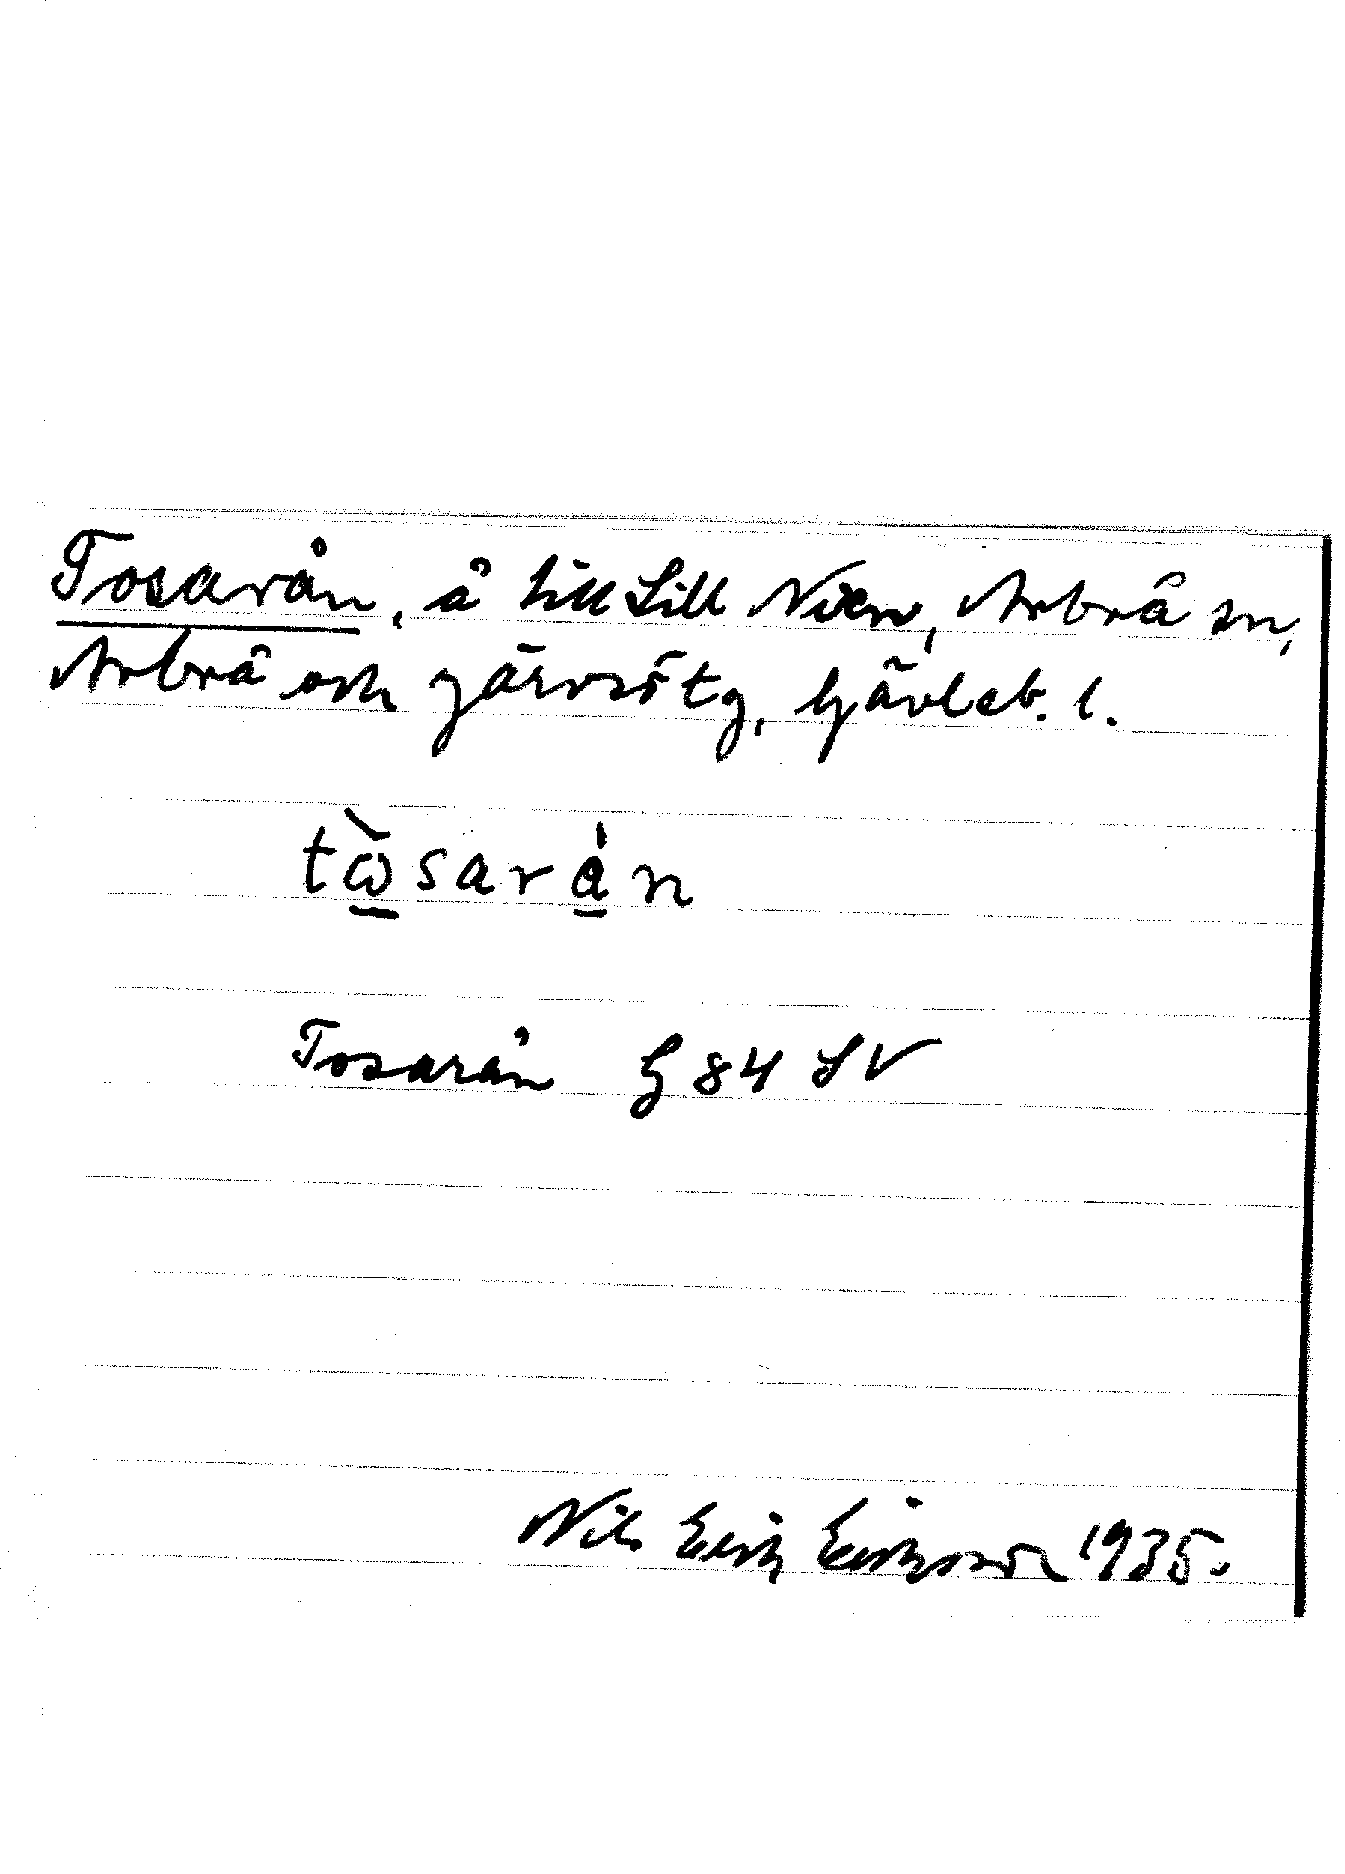 Tosarån, å till Lill Nien, Arbrå sn,
Arbrå och Järvsö tg, Gävleb. l.
tὼ̱sarȧ̱n
Tosarån G 84 SV
Nils Erik Eriksson 1935.